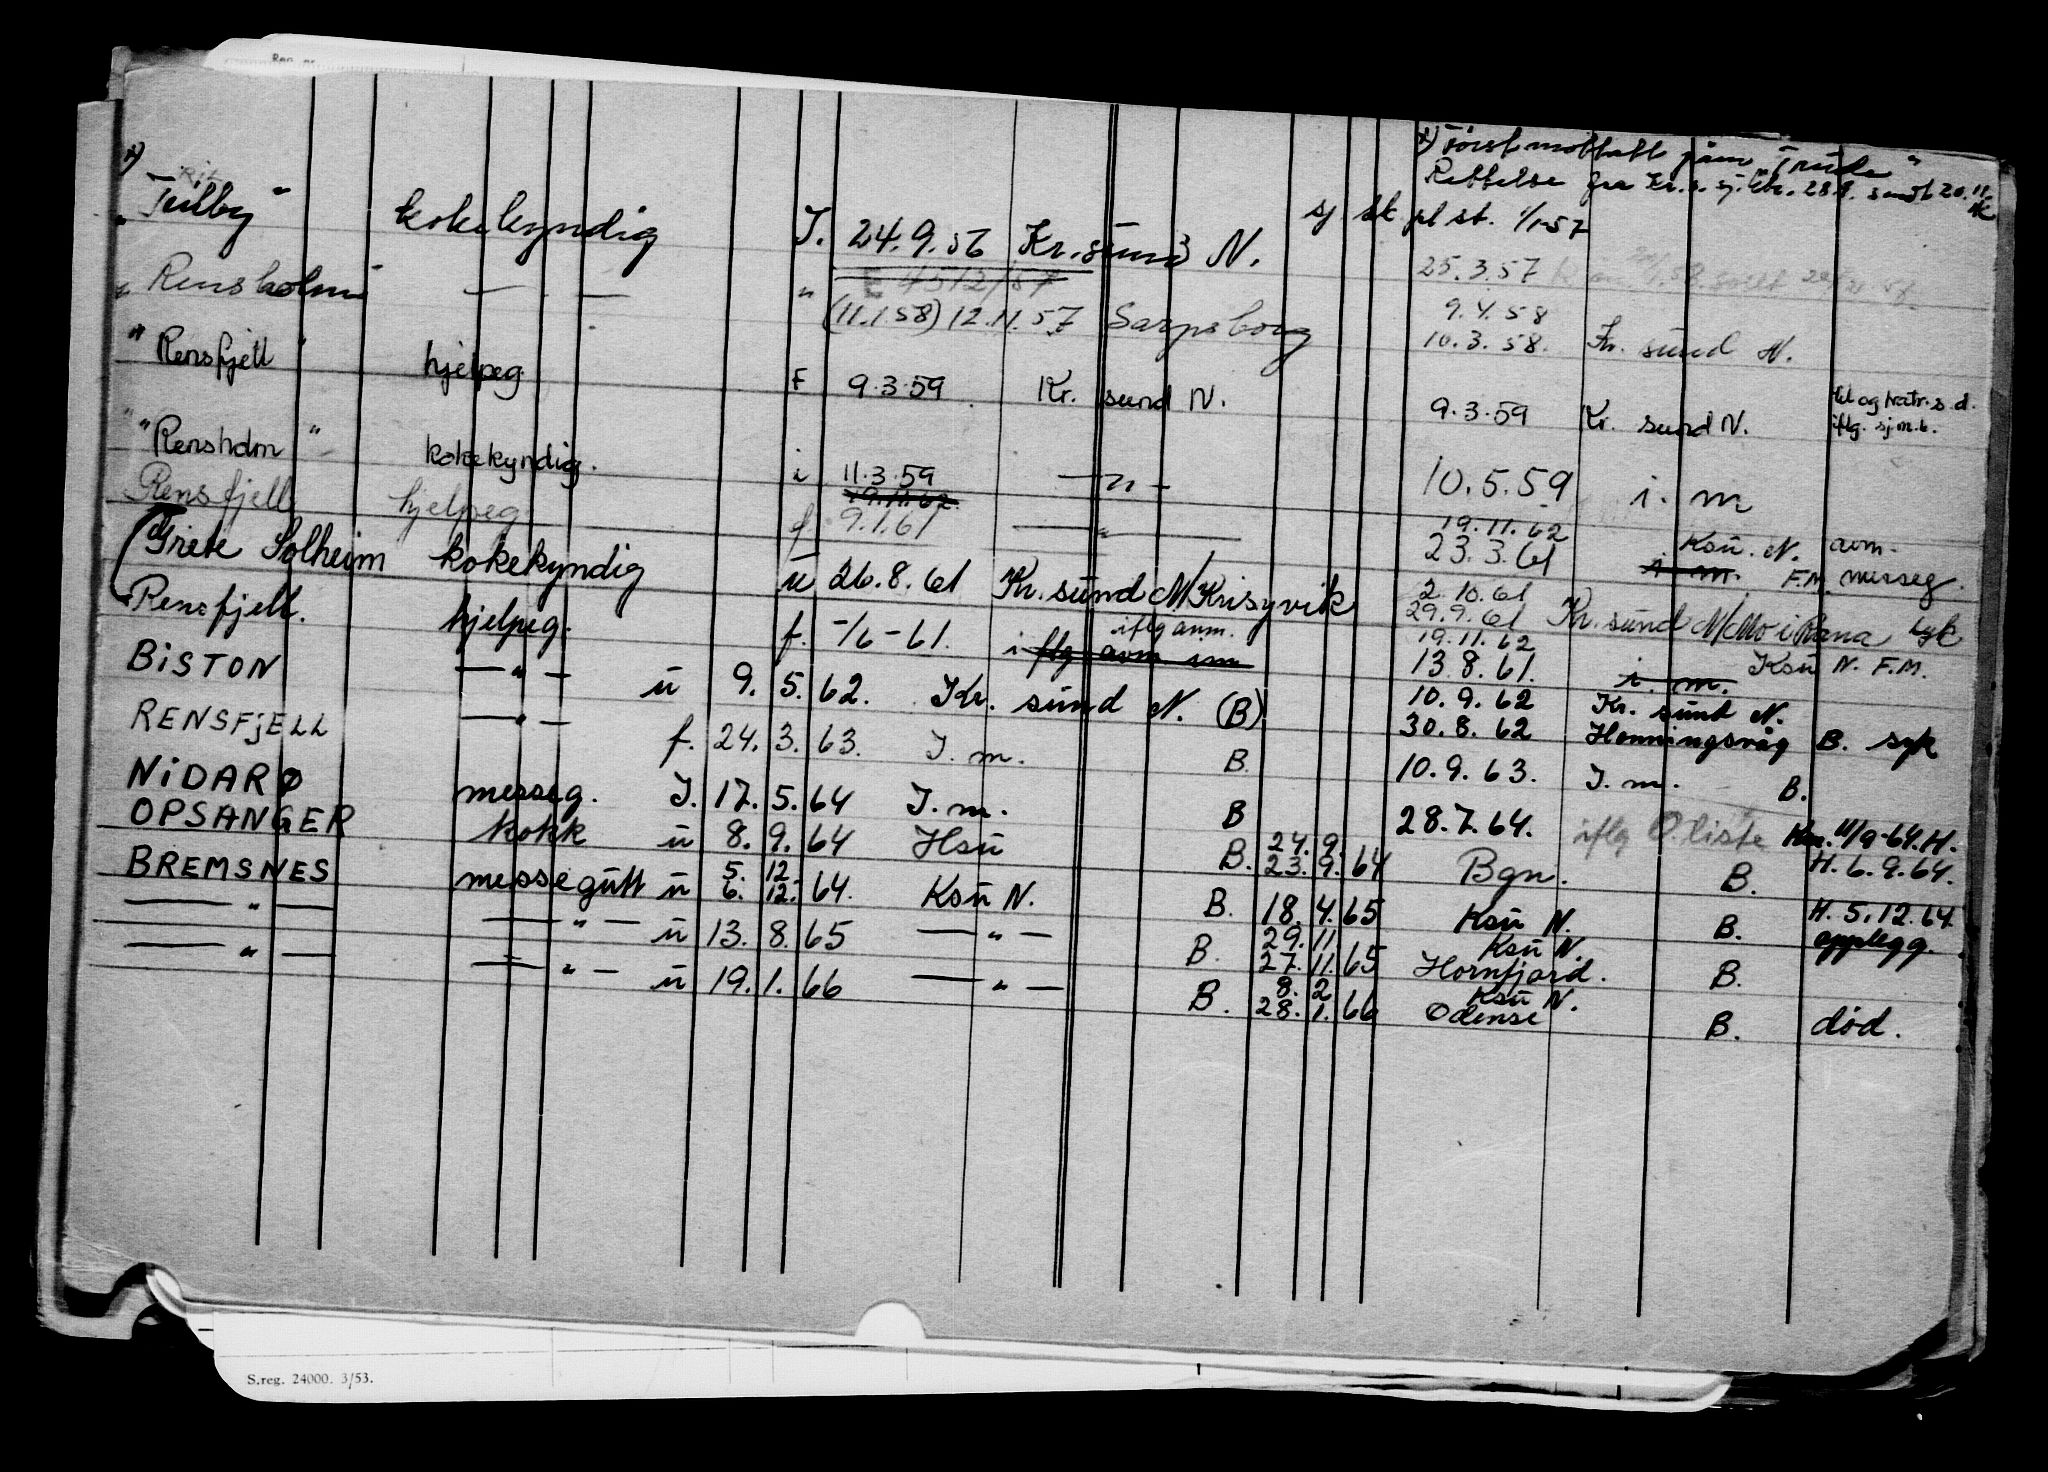 x) Først mottatt
Rettelse fra Kr. s. sj.
"Tilby" kokekyndig I. 24.9.56 Kr.sund N. sj st pl st. 1/1-57
E 4512/57 25.3.57
"Rensholm" — — " (11.1.58) 12.11.57 Sarpsborg 9.4.58
10.3.58. Kr. sund N.
"Rensfjell" hjelpeg F 9.3.59 Kr. sund N. 9.3.59 Kr. sund N.
iflg. sj.m.k.
"Rensholm" kokekyndig. i 11.3.59 — " — 10.5.59 i. m
19.11.62
Rensfjell hjelpeg f. 9.1.61 — " — 19.11.62 Ksu. N. avm.
23.3.61 i. m. F.M. messeg.
Grete Solheim kokekyndig u 26.8.61 Kr.sund N/Krisyvik 2.10.61
29.9.61 Kr. sund N/Mo i Rana syk
Rensfjell. hjelpeg. f. -/6-61. iflg avm. 19.11.62
i flg avm im 13.8.61. i. m. Ksu N. F.M.
BISTON — " — u 9. 5. 62. Kr. sund N. (B) 10.9.62 Kr. sund N.
30.8.62 Honningsvåg B. syk
RENSFJELL — " — f. 24. 3. 63. I. m. B. 10.9.63. I. m. B.
NIDARØ messeg. I. 17. 5. 64 I. m. B 28.7.64. iflg O.liste 11/9-64.H.
OPSANGER kokk u 8. 9. 64 Hsu B. 24. 9.
23. 9. 64 Bgn. B. H. 6.9.64.
BREMSNES messegutt u 5. 12.
6. 12. 64. Ksu N. B. 18. 4. 65 Ksu N. B. H. 5.12.64
opplegg.
— " — — " — u 13. 8. 65 — " — B. 29. 11 Ksu N.
27. 11. 65 Hornfjord. B.
— " — — " — u 19. 1. 66 — " — B. 8. 2 Ksu N.
28. 1. 66 Odense B. død.
S.reg. 24000. 3/53.